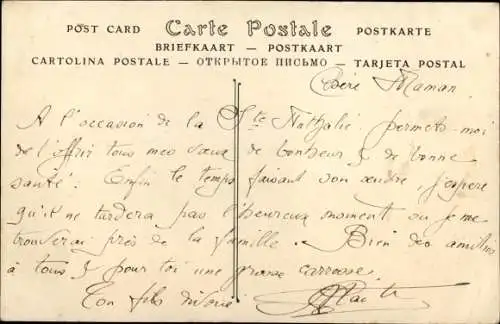 POST CARD Carte Postale POSTKARTE
BRIEFKAART — POSTKAART
CARTOLINA POSTALE — ОТКРЫТОЕ ПИСЬМО — TARJETA POSTAL
Chère Maman
A l'occasion de la Ste Nathalie permets-moi
de t'offrir tous mes vœux de bonheur & de bonne
santé. Enfin le temps faisant son œuvre, j'espère
qu'il ne tardera pas l'heureux moment ou je me
trouverai près de la famille. Bien des amitiés
à tous & pour toi une grosse carresse.
Ton fils dévoué